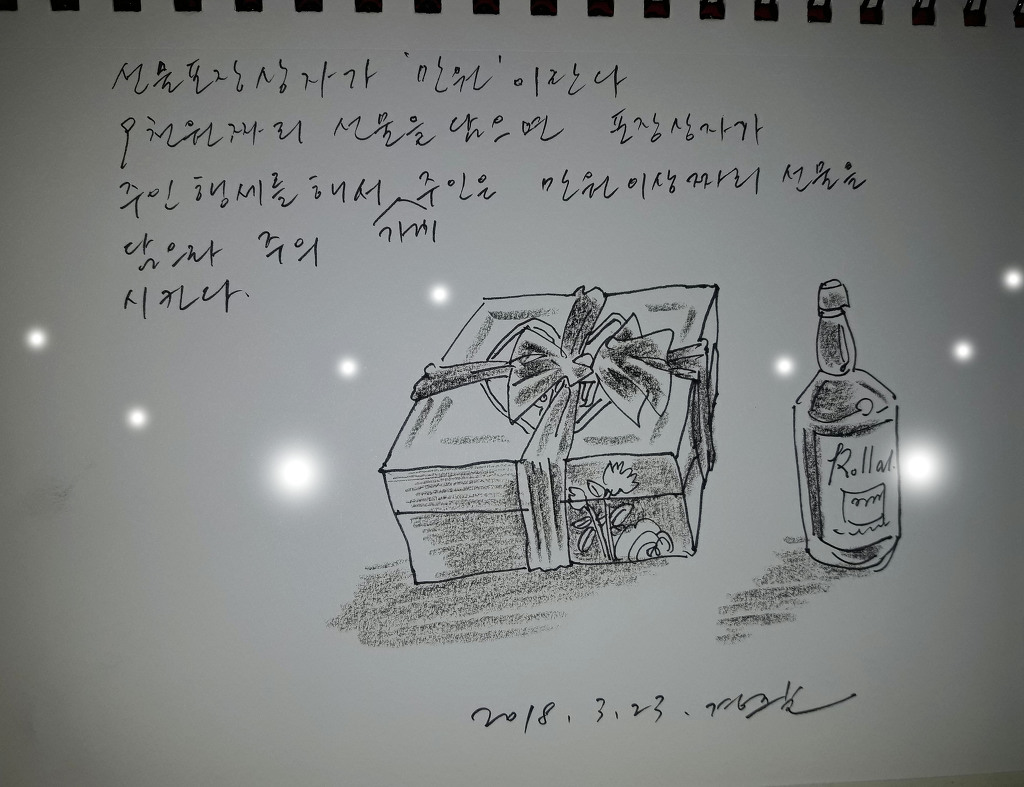 선물포장상자가 '만원'이란다
9천원짜리 선물을 담으면 포장상자가
주인행세를 해서 가게 주인은 만원이상짜리 선물을
담으라 주의
시킨다.
Rollal.
2018. 3. 23.